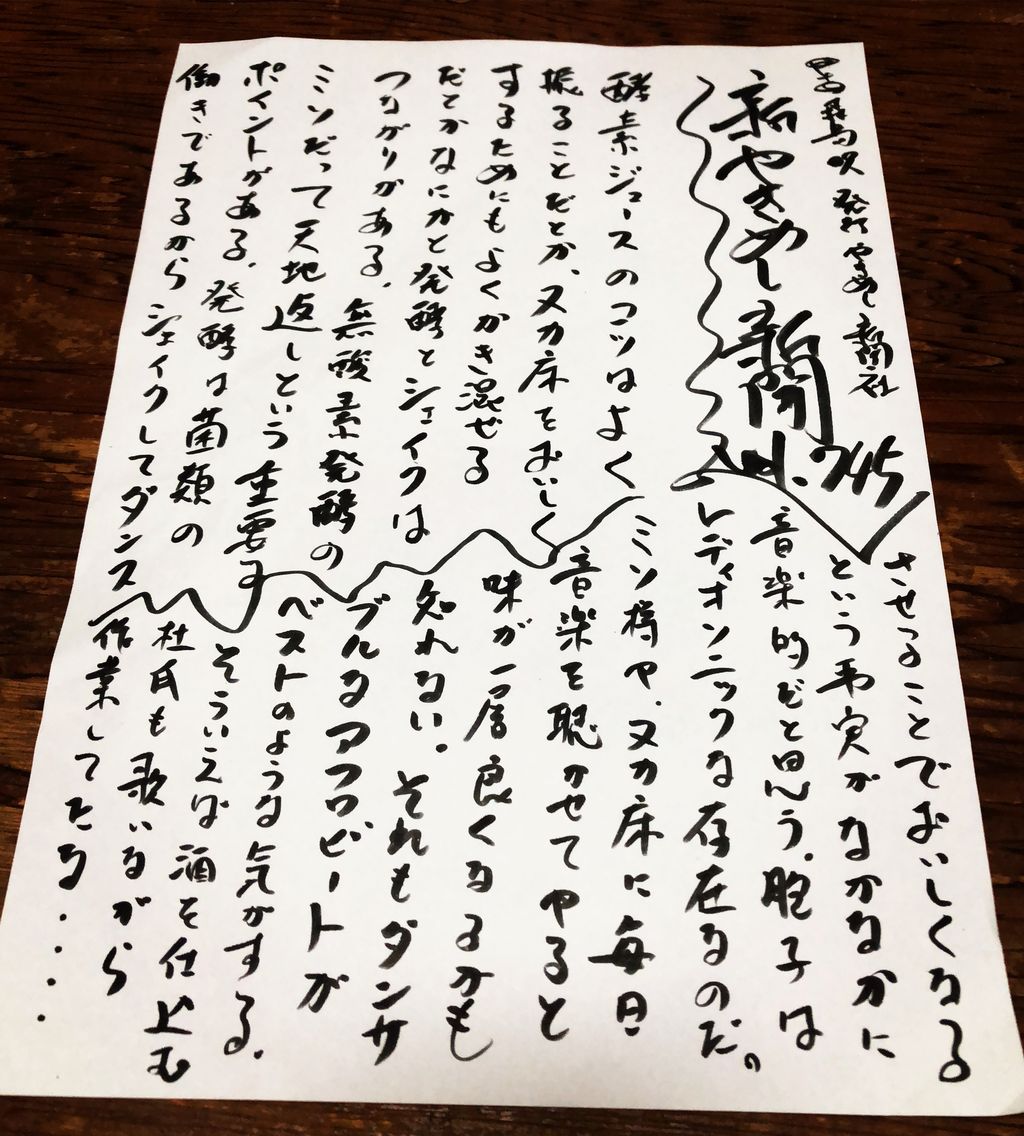 発行 やきめし新聞社
新やきめし新聞 No.745
酵素ジュースのコツはよく
振ることだとか、ヌカ床をおいしく
するためにもよくかき混ぜる
だとかなにかと発酵とシェイクは
つながりがある。無酸素発酵の
ミソだって天地返しという重要な
ポイントがある。発酵は菌類の
働きであるからシェイクしてダンス
させることでおいしくなる
という事実がなかなかに
音楽的だと思う。胞子は
レディオソニックな存在なのだ。
ミソ樽や、ヌカ床に毎日
音楽を聴かせてやると
味が一層良くなるかも
知れない。それもダンサ
ブルなアフロビートが
ベストのような気がする。
そういえば酒を仕込む
杜氏も歌いながら
作業してたな・・・・